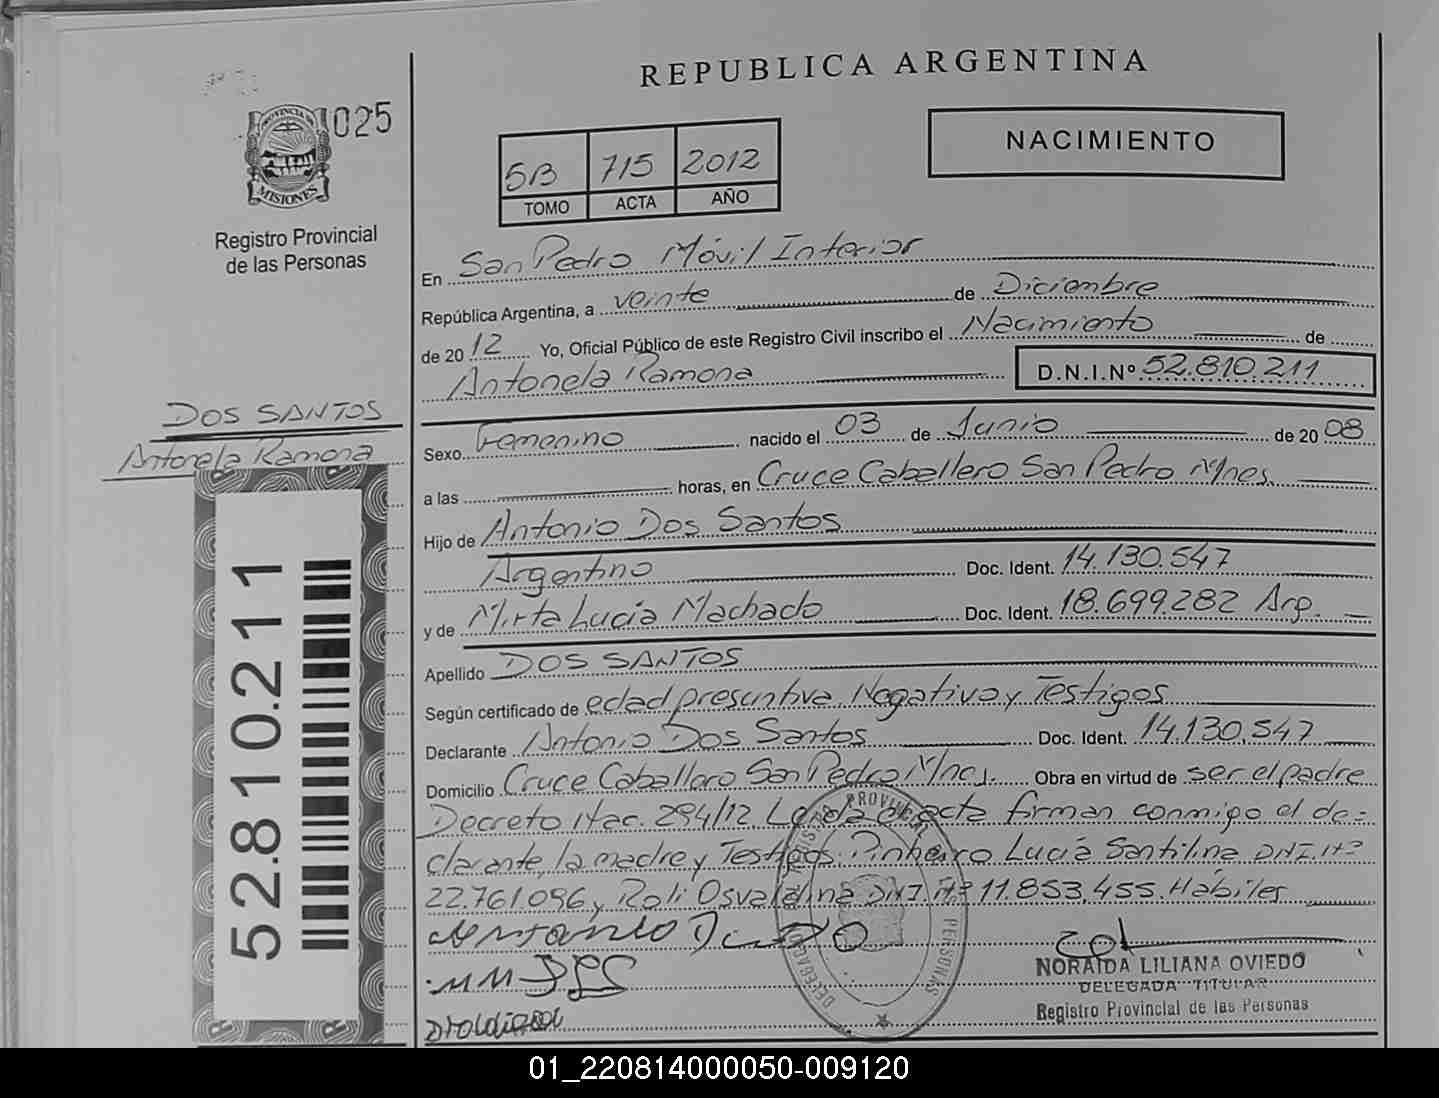 REPUBLICA ARGENTINA
PROVINCIA DE
MISIONES
025
Registro Provincial
de las Personas
NACIMIENTO
5B 715 2012
TOMO ACTA AÑO
En San Pedro Móvil Interior
República Argentina, a veinte de Diciembre
de 2012 Yo, Oficial Público de este Registro Civil inscribo el Nacimiento de
Antonela Ramona D.N.I.Nº 52.810.211
DOS SANTOS
Antonela Ramona
Sexo Femenino nacido el 03 de Junio de 2008
a las horas, en Cruce Caballero San Pedro Mnes.
Hijo de Antonio Dos Santos
Argentino Doc. Ident. 14.130.547
y de Mirta Lucía Machado Doc. Ident. 18.699.282 Arg.
Apellido DOS SANTOS
Según certificado de edad presuntiva, Negativa y Testigos
Declarante Antonio Dos Santos Doc. Ident. 14.130.547
Domicilio Cruce Caballero San Pedro Mnes. Obra en virtud de ser el padre
Decreto 294/12. Leída el acta firman conmigo el de-
clarante, la madre y Testigos: Pinheiro Lucía Santilina DNI.Nº
22.761.096 y Roli Osvaldina DNI.Nº 11.853.455. Hábiles
52.810.211
NORAIDA LILIANA OVIEDO
DELEGADA TITULAR
Registro Provincial de las Personas
01_220814000050-009120